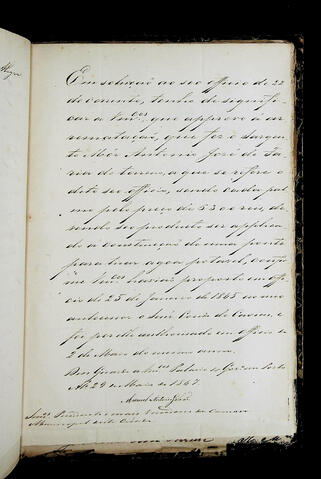 Em solução ao seo officio de 22
do corrente, tenho de signifi-
car a Vm.ces que approvo a ar-
rematação, que fez o Sargen-
to Mór Antonio José de Fa-
ria do terreno, a que se refere o
dito seo officio, sendo cada pal-
mo pelo preço de 530 reis, de-
vendo seo producto ser applica-
do a construcção de uma ponte
para tirar agoa potavel, confor-
me Vm.ces havião proposto em offi-
cio de 25 de Janeiro de 1865 ao meo
antecessor o Snr.
foi por elle authorisado em officio de
2 de Maio do mesmo anno.
Deos Guarde a Vm.ces Palacio do Governo
29 de de 1867.
Snr.es Presidente e mais Vereadores da Camara
Municipal